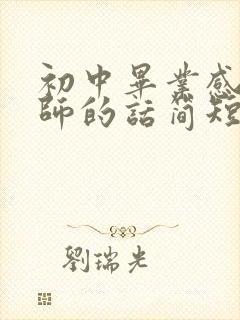 初中畢業感
師的話简短
劉瑞光